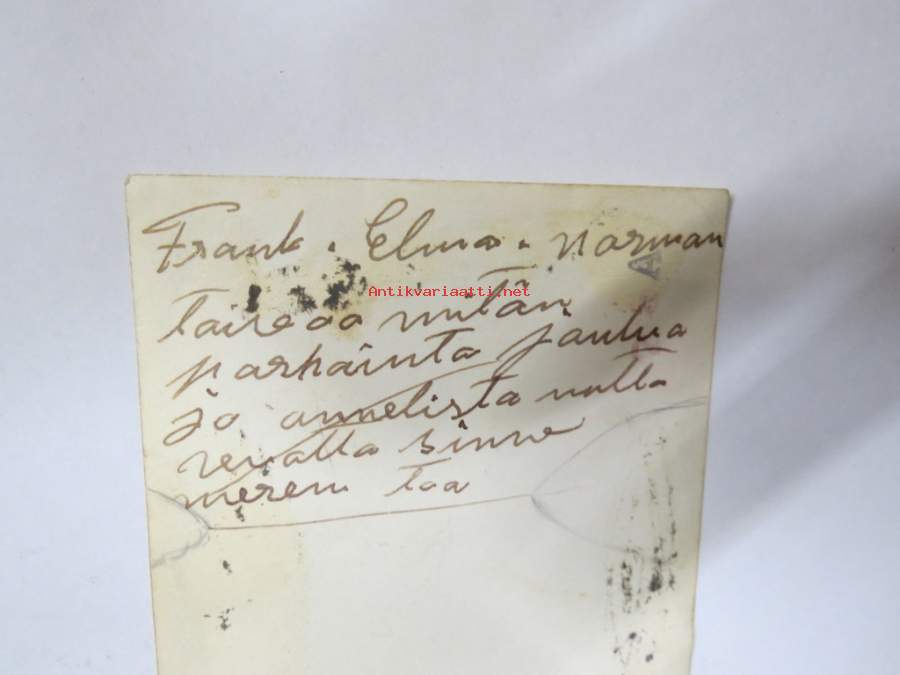 Frank. Elma. Norman
Antikvariaatti.net
A
mitän
parhainta Joulua
jo onnelista uutta
vuatta sinne
meren taa